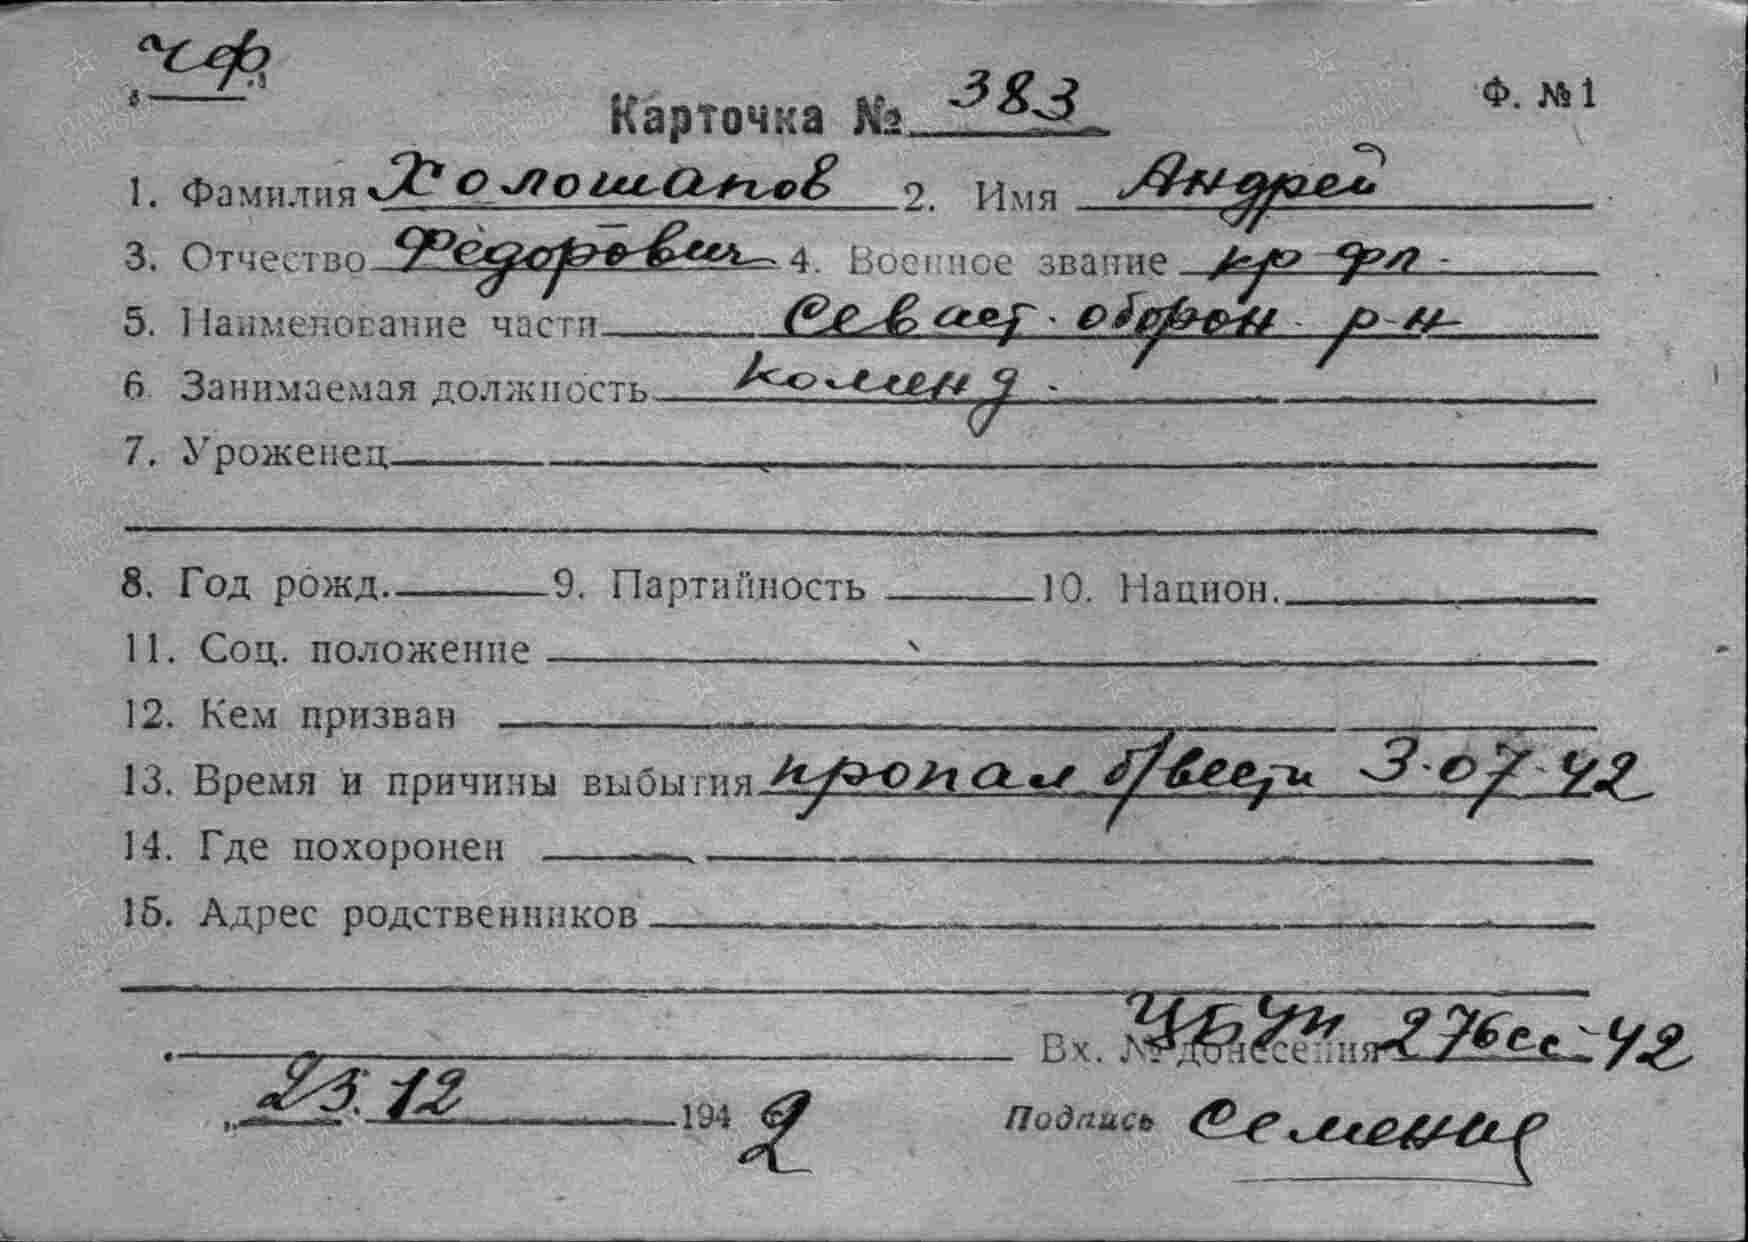 ЧФ
Карточка № 383 Ф. №1
1. Фамилия Холошапов 2. Имя Андрей
3. Отчество Фёдорович 4. Военное звание кр фл.
5. Наименование части Севаст. оборон. р-н
6. Занимаемая должность коменд.
7. Уроженец
8. Год рожд. 9. Партийность 10. Национ.
11. Соц. положение
12. Кем призван
13. Время и причины выбытия пропал б/вести 3.07.42
14. Где похоронен
15. Адрес родственников
Вх. № донесения ЦБУП 276сс-42
„25.12 1942
Подпись
ПАМЯТЬ НАРОДА